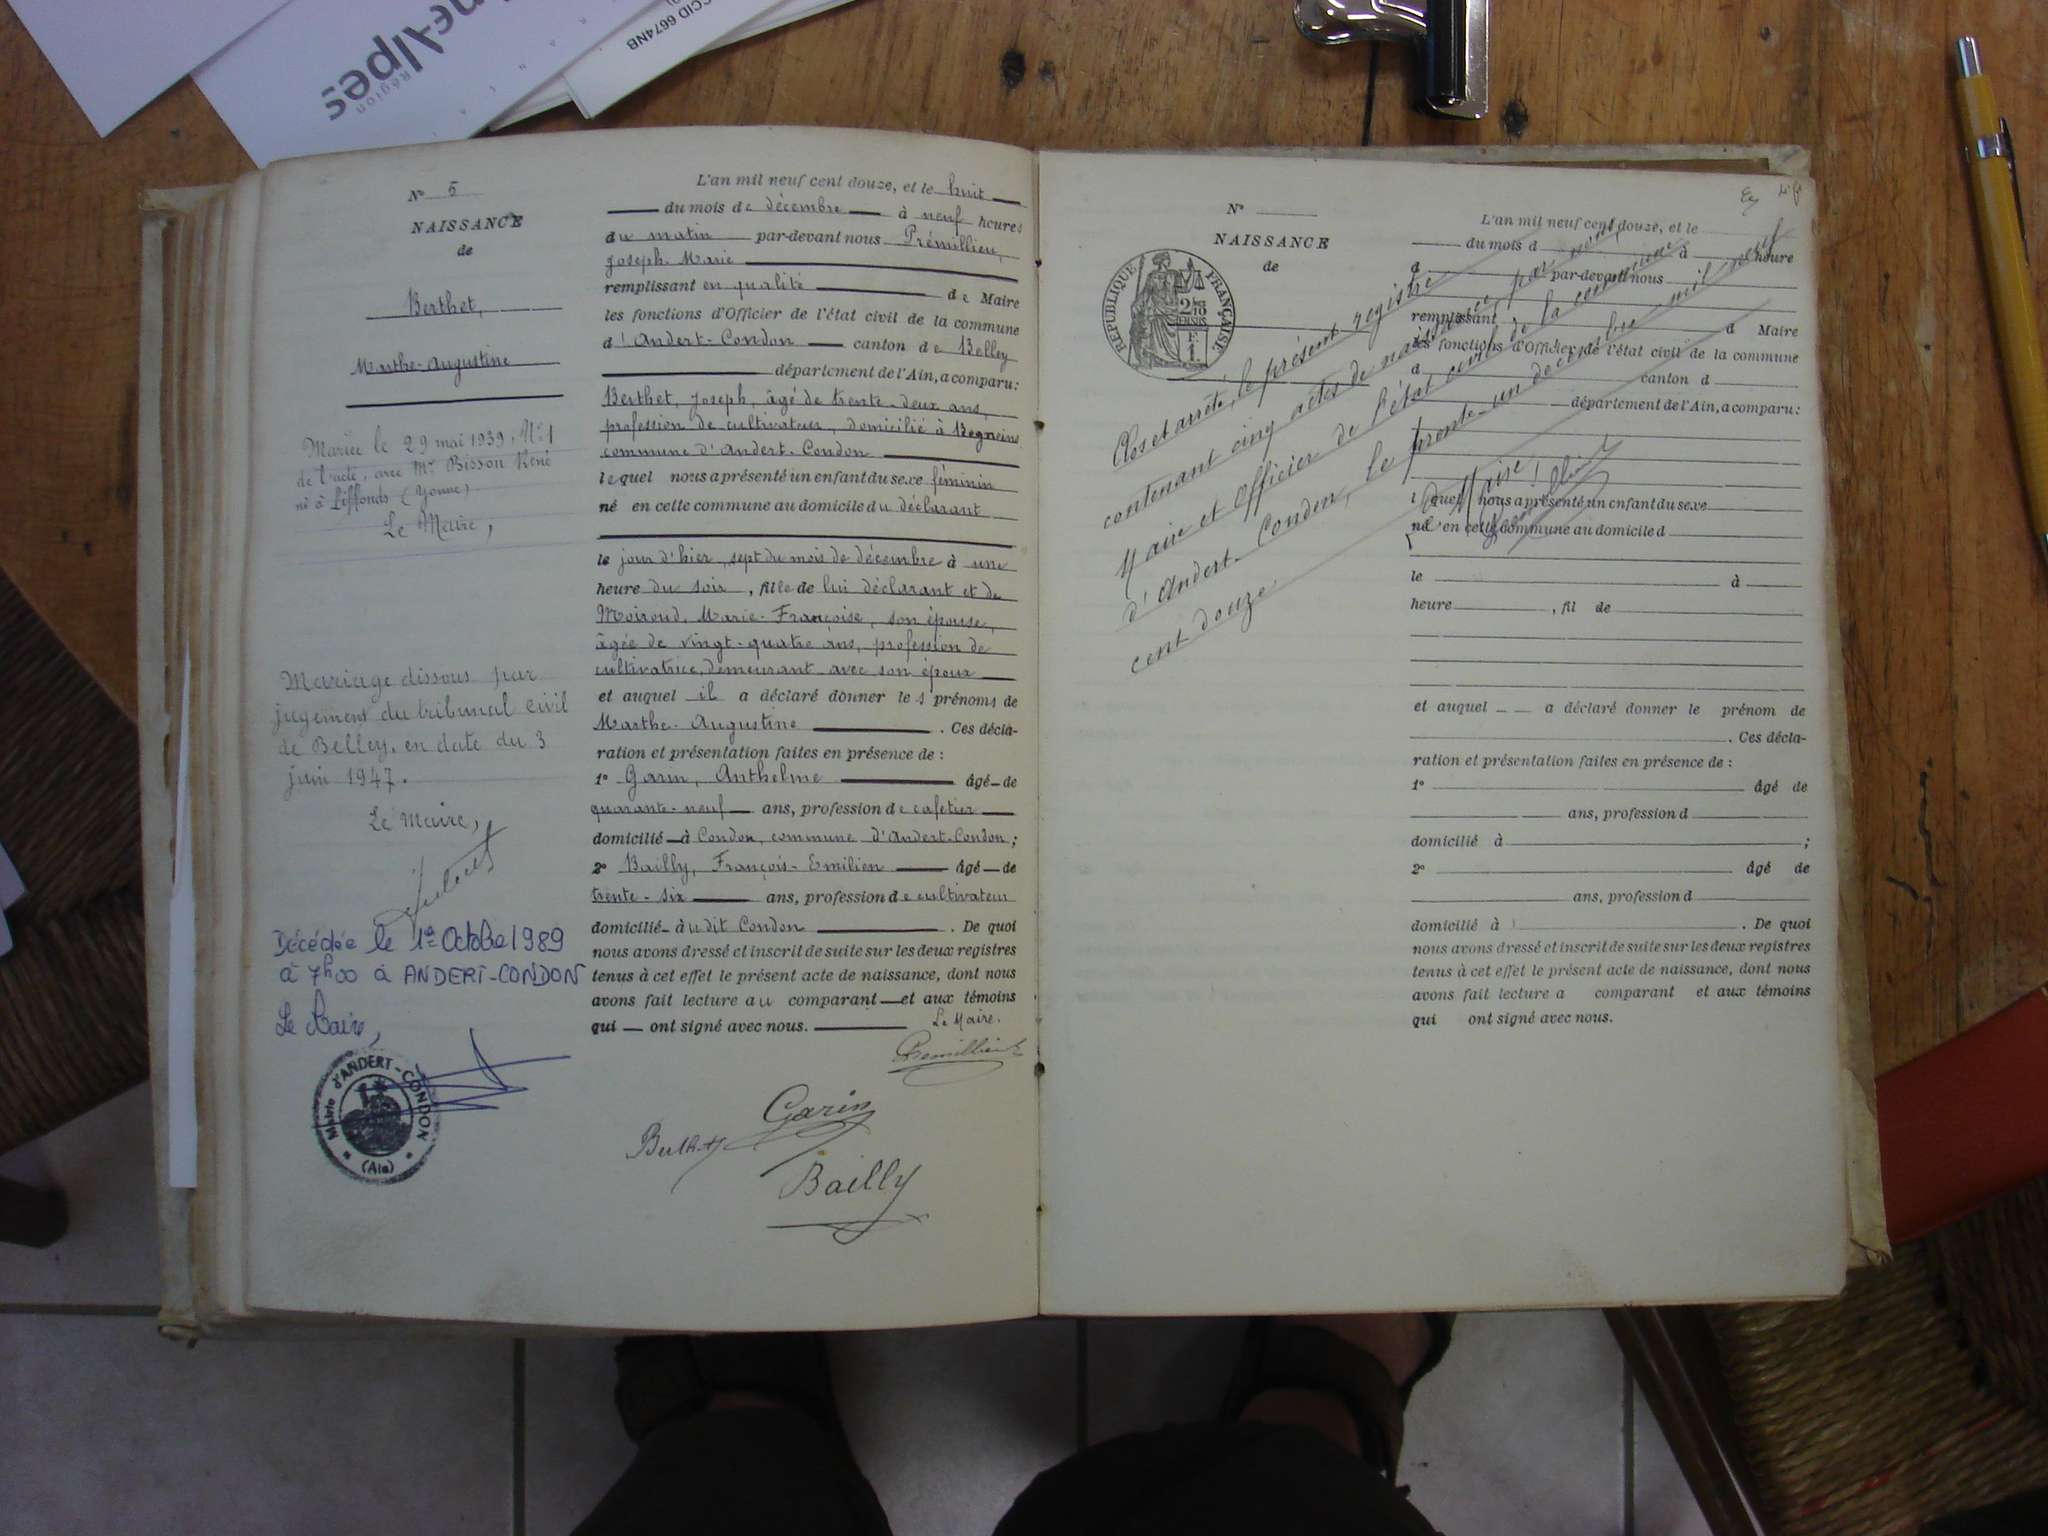 ne-Alpes
Région
CCID 6674NB
N° 5
NAISSANCE
de
Berthet,
Marthe-Augustine
Mariée le 29 mai 1939, N° 1
de l'acte, avec Mr Bisson René
né à Liffonds (Yonne)
Le Maire,
Mariage dissous par
jugement du tribunal civil
de Belley, en date du 3
juin 1947.
Le Maire,
Décédée le 1er Octobre 1989
à 7h00 à ANDERT-CONDON
Le Maire,
Mairie d'ANDERT-CONDON
(Ain)
L'an mil neuf cent douze, et le huit
du mois de décembre à neuf heures
du matin par-devant nous Prémillieu,
Joseph-Marie
remplissant en qualité de Maire
les fonctions d'Officier de l'état civil de la commune
d'Andert-Condon canton de Belley
département de l'Ain, a comparu:
Berthet, Joseph, âgé de trente-deux ans,
profession de cultivateur, domicilié à Begneins
commune d'Andert-Condon
lequel nous a présenté un enfant du sexe féminin
né en cette commune au domicile du déclarant
le jour d'hier, sept du mois de décembre à une
heure du soir, fille de lui déclarant et de
Moiroud, Marie-Françoise, son épouse,
âgée de vingt-quatre ans, profession de
cultivatrice, demeurant avec son époux
et auquel il a déclaré donner les prénoms de
Marthe-Augustine . Ces décla-
ration et présentation faites en présence de :
1° Garin, Anthelme âgé de
quarante-neuf ans, profession de cafetier
domicilié à Condon, commune d'Andert-Condon ;
2° Bailly, François-Emilien âgé de
trente-six ans, profession de cultivateur
domicilié audit Condon . De quoi
nous avons dressé et inscrit de suite sur les deux registres
tenus à cet effet le présent acte de naissance, dont nous
avons fait lecture au comparant et aux témoins
qui ont signé avec nous. Le Maire.
Prémillieu
Garin
Berthet
Bailly
N°
NAISSANCE
de
RÉPUBLIQUE FRANÇAISE
2/10
F.
1.
Clos et arrêté, le présent registre
contenant cinq actes de naissance, par nous
Maire et Officier de l'état civil de la commune
d'Andert-Condon, le trente-un décembre mil neuf
cent douze
Le Maire
L'an mil neuf cent douze, et le
du mois d à heure
d par-devant nous
remplissant d Maire
les fonctions d'Officier de l'état civil de la commune
d canton d
département de l'Ain, a comparu:
l quel nous a présenté un enfant du sexe
né en cette commune au domicile d
le à
heure , fil de
et auquel a déclaré donner le prénom de
. Ces décla-
ration et présentation faites en présence de :
1° âgé de
ans, profession d
domicilié à ;
2° âgé de
ans, profession d
domicilié à . De quoi
nous avons dressé et inscrit de suite sur les deux registres
tenus à cet effet le présent acte de naissance, dont nous
avons fait lecture a comparant et aux témoins
qui ont signé avec nous.